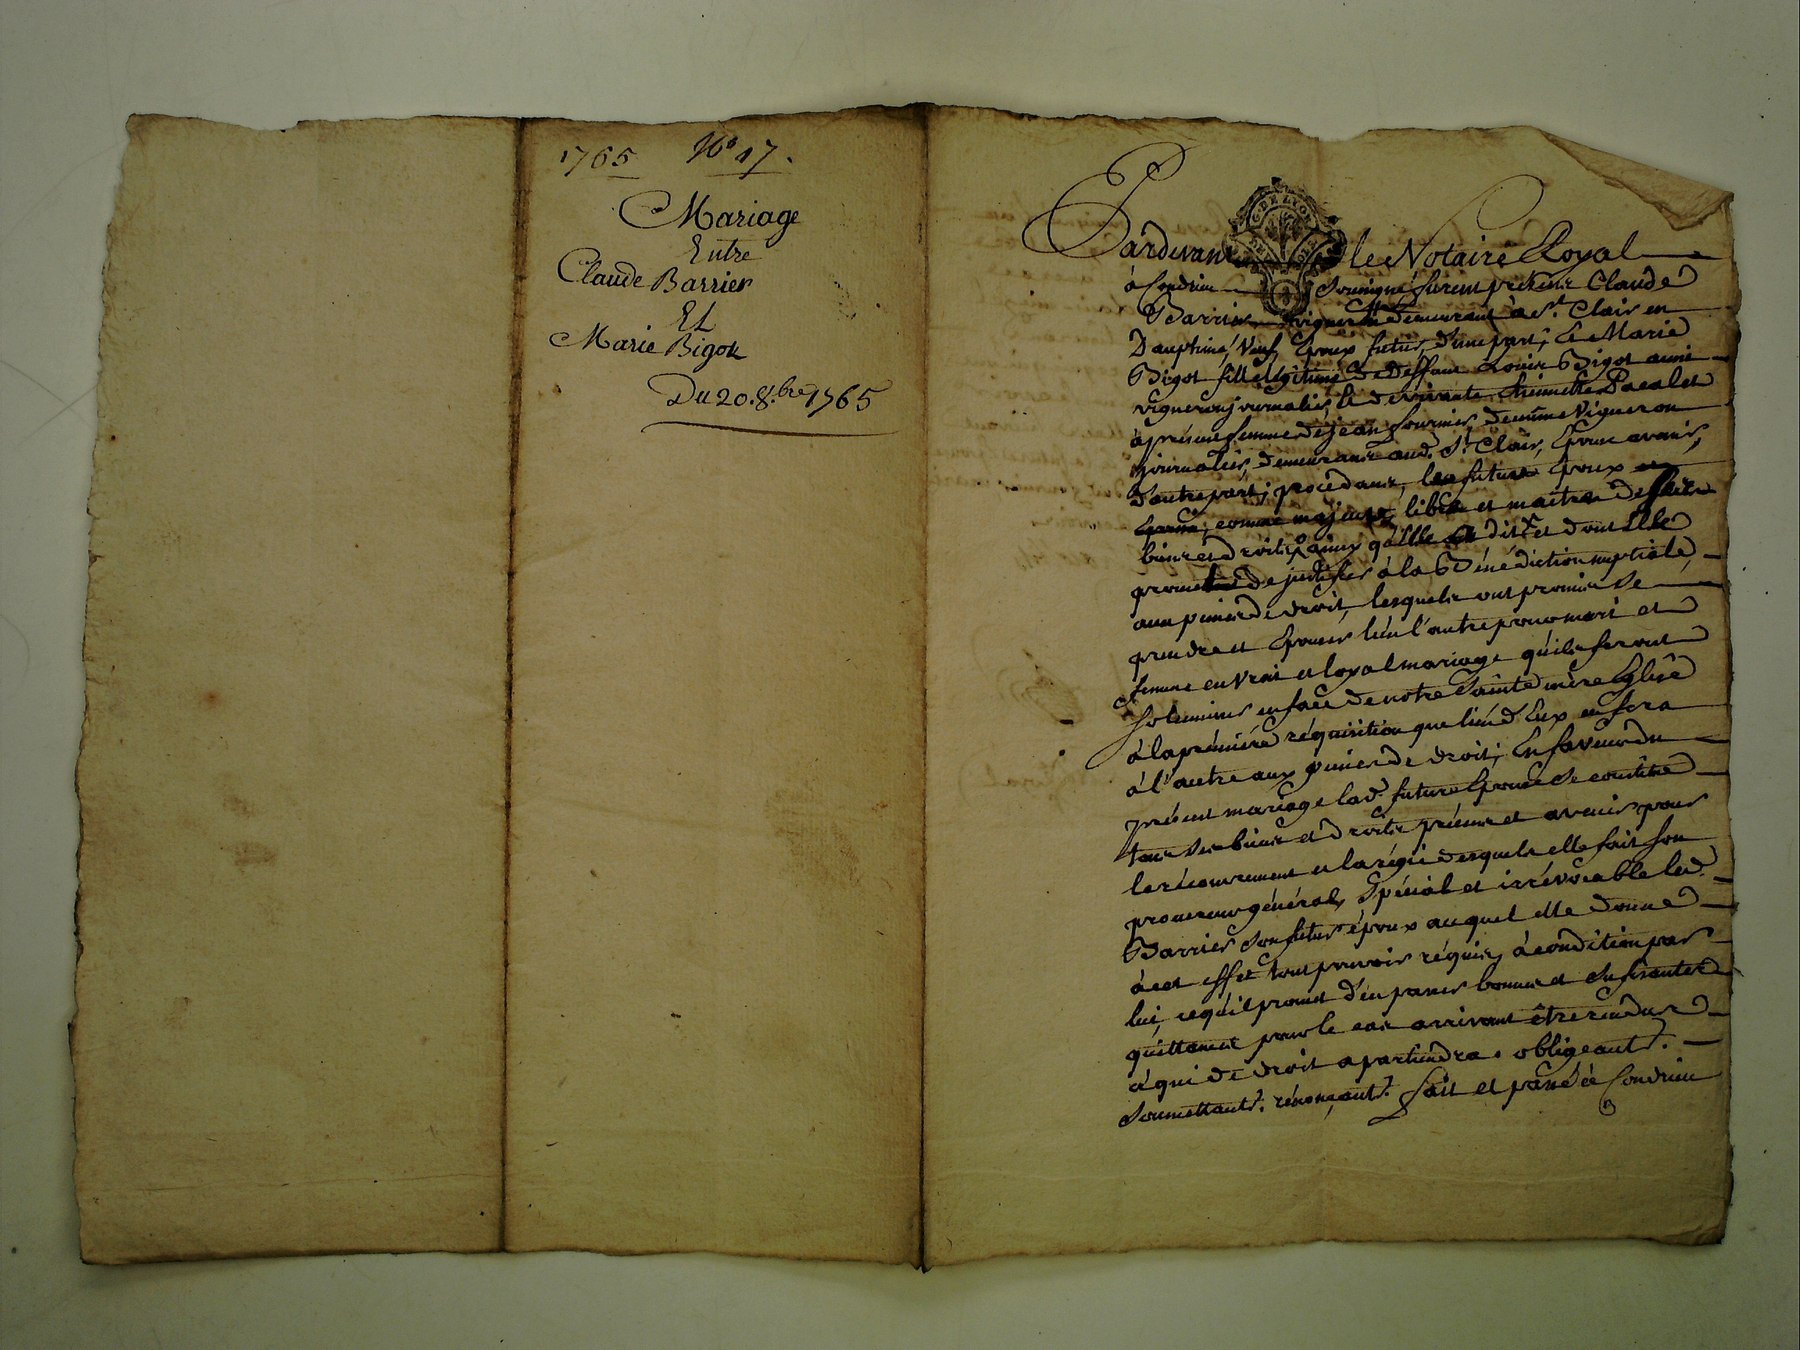 1765 No 17.
Mariage
Entre
Claude Barrier
Et
Marie Bigot
Du 20. 8.bre 1765
G. DE LYON
Pardevant le Notaire Royal
à Condrieu soussigné furent présens Claude
Barrier vigneron demeurant à St. Clair en
Dauphiné, veuf, Epoux futur, d'une part; Et Marie
Bigot fille légitime de deffunt Louis Bigot aussi
vigneron journalier, et de vivante
à présent femme de jean fournier, demême vigneron
journalier, demeurant aud. St. Clair, Epouse avenir,
d'autre part; procédant, les futurs Epoux
comme majeurs, libres et maitres de
biens et droits, ainsi qu'elle a dit et dont Elle
promet de justifier à la Bénédiction nuptiale,
aux peines de droit, lesquels ont promis se
prendre et Epouser l'un l'autre pour mari et
femme en vrai et loyal mariage qu'ils feront
solemniser en face de notre Sainte mère Eglise
à la prémiére réquisition que l'un d'Eux en fera
à l'autre aux peines de droit; En faveur du
présent mariage lad. future Epouse se constitue
tous ses biens et droits présens et avenir pour
le récouvrement et la régie desquels elle fait son
procureur général, spécial et irrévocable led.
Barrier son futur époux auquel elle donne
à cet effet tout pouvoir réquis, à condition par
lui, ce qu'il promet d'en passer bonnes et suffisantes
quittances pour le cas arrivant être rendus
à qui de droit apartiendra. obligeant.
soumettant. rénonçant. fait et passé à Condrieu